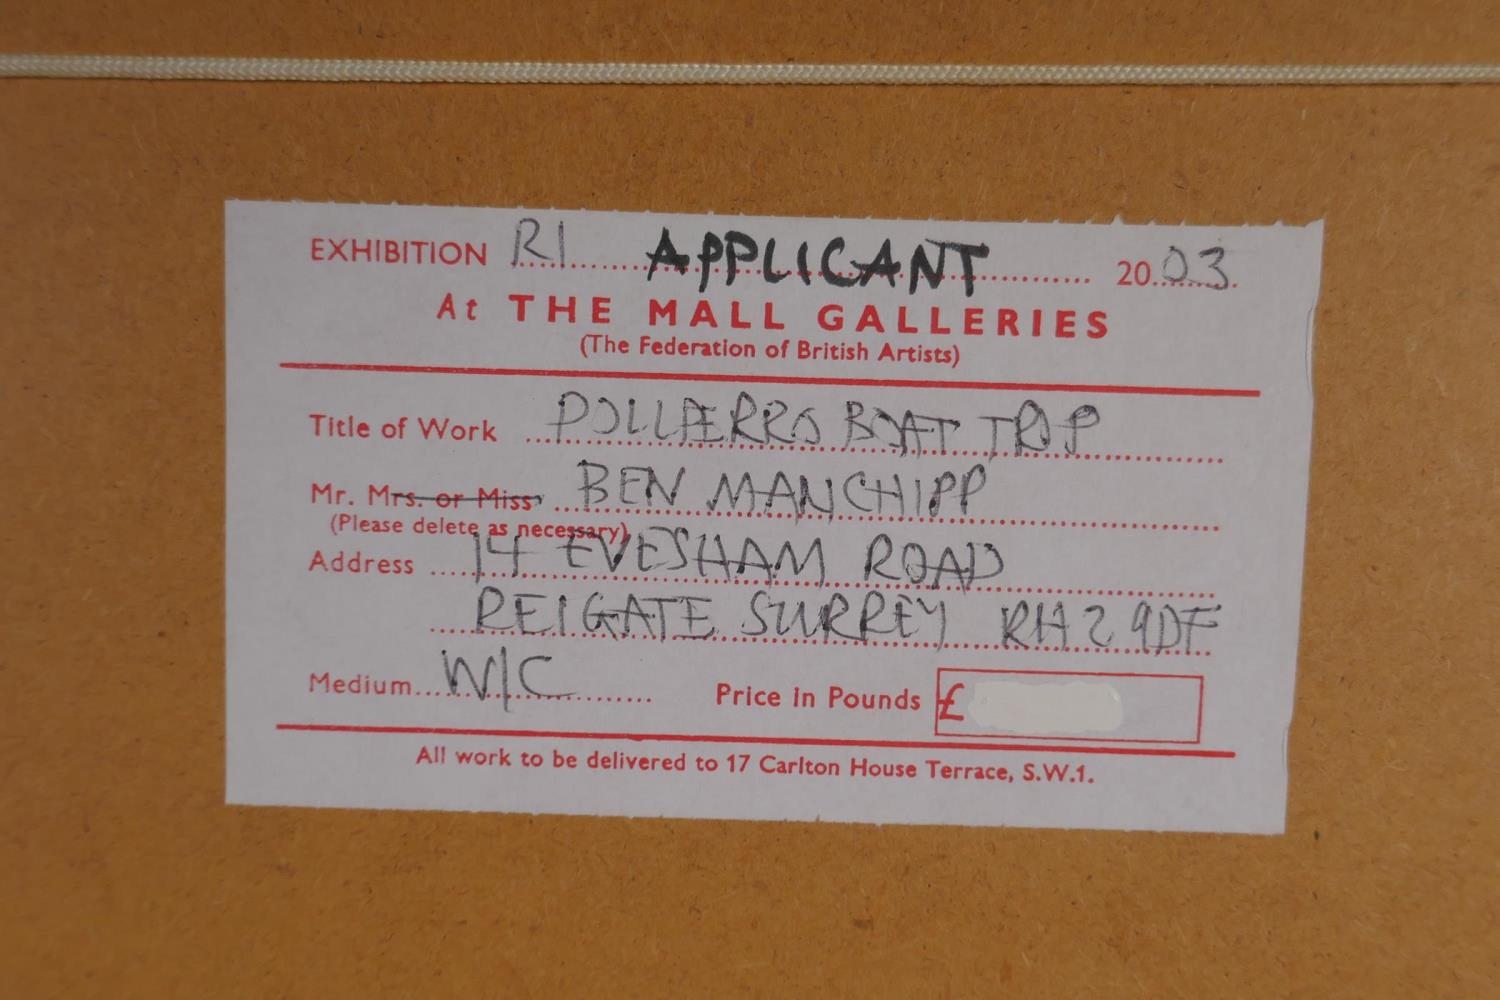 EXHIBITION RI APPLICANT 2003
At THE MALL GALLERIES
(The Federation of British Artists)
Title of Work POLLAERRO BOAT TRIP
Mr. Mrs. or Miss BEN MANCHIPP
(Please delete as necessary)
Address 14 EVESHAM ROAD
REIGATE SURREY RH2 9DF
Medium W/C Price in Pounds £
All work to be delivered to 17 Carlton House Terrace, S.W.1.